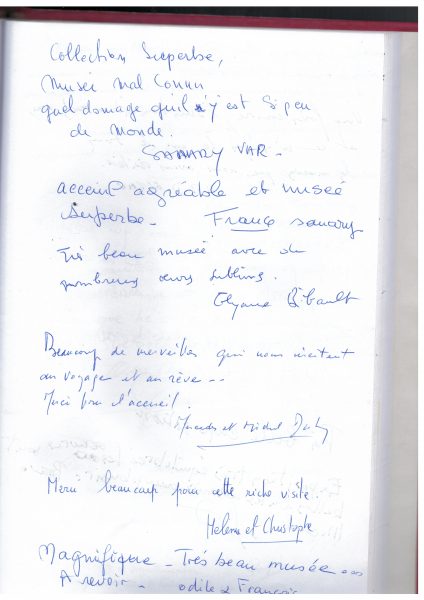 Collection Superbe,
Musée mal Connu
quel domage qu'il n'y est si peu
de monde.
SANARY VAR -
acceuil agréable et musée
superbe - France sanary
Très beau musée avec de
nombreux œuvres sublimes.
Elyane Bibault
Beaucoup de merveilles qui nous incitent
au voyage et au rêve --
Merci pour l'accueil.
et Michel
Merci beaucoup pour cette riche visite.
Hélène et Christophe
Magnifique - Très beau musée ...
A revoir - odile & François